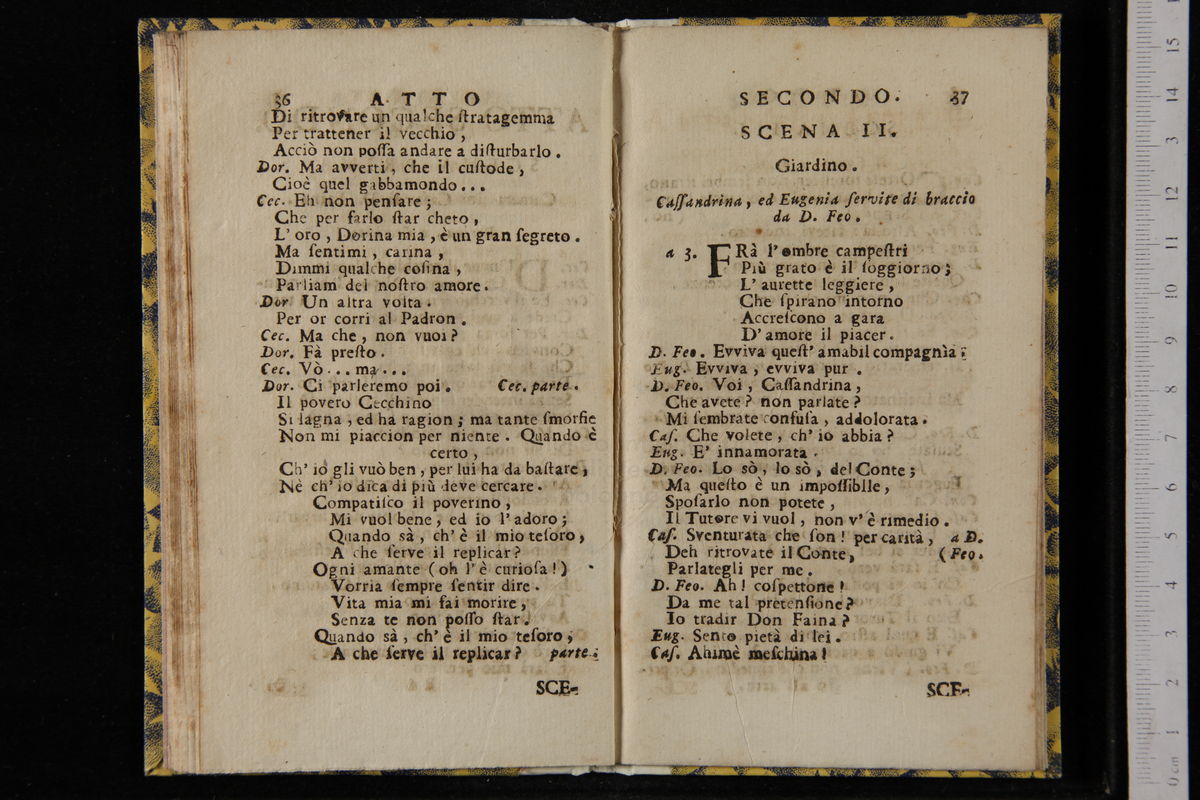 36 ATTO
Di ritrovare un qualche ſtratagemma
Per trattener il vecchio,
Acciò non poſſa andare a diſturbarlo.
Dor. Ma avverti, che il cuſtode,
Cioè quel gabbamondo...
Cec. Eh non penſare;
Che per farlo ſtar cheto,
L' oro, Dorina mia, è un gran ſegreto.
Ma ſentimi, carina,
Dimmi qualche coſina,
Parliam del noſtro amore.
Dor. Un altra volta.
Per or corri al Padron.
Cec. Ma che, non vuoi?
Dor. Fà preſto.
Cec. Vò... ma...
Dor. Ci parleremo poi. Cec. parte.
Il povero Cecchino
Si lagna, ed ha ragion; ma tante ſmorfie
Non mi piaccion per niente. Quando è
certo,
Ch' io gli vuò ben, per lui ha da baſtare,
Nè ch' io dica di più deve cercare.
Compatiſco il poverino,
Mi vuol bene, ed io l' adoro;
Quando sà, ch' è il mio teſoro,
A che ſerve il replicar?
Ogni amante (oh l' è curioſa!)
Vorria ſempre ſentir dire.
Vita mia mi fai morire,
Senza te non poſſo ſtar.
Quando sà, ch' è il mio teſoro,
A che ſerve il replicar? parte.
SCE-
SECONDO. 37
SCENA II.
Giardino.
Caſſandrina, ed Eugenia ſervite di braccio
da D. Feo.
a 3. FRà l' ombre campeſtri
Più grato è il ſoggiorno;
L' aurette leggiere,
Che ſpirano intorno
Accreſcono a gara
D' amore il piacer.
D. Feo. Evviva queſt' amabil compagnìa;
Eug. Evviva, evviva pur.
D. Feo. Voi, Caſſandrina,
Che avete? non parlate?
Mi ſembrate confuſa, addolorata.
Caſ. Che volete, ch' io abbia?
Eug. E' innamorata.
D. Feo. Lo sò, lo sò, del Conte;
Ma queſto è un impoſſiblle,
Spoſarlo non potete,
Il Tutore vi vuol, non v' è rimedio.
Caſ. Sventurata che ſon! per carità, a D.
Deh ritrovate il Conte, (Feo.
Parlategli per me.
D. Feo. Ah! coſpettone!
Da me tal pretenſione?
Io tradir Don Faina?
Eug. Sento pietà di lei.
Caſ. Ahimè meſchina!
SCE-